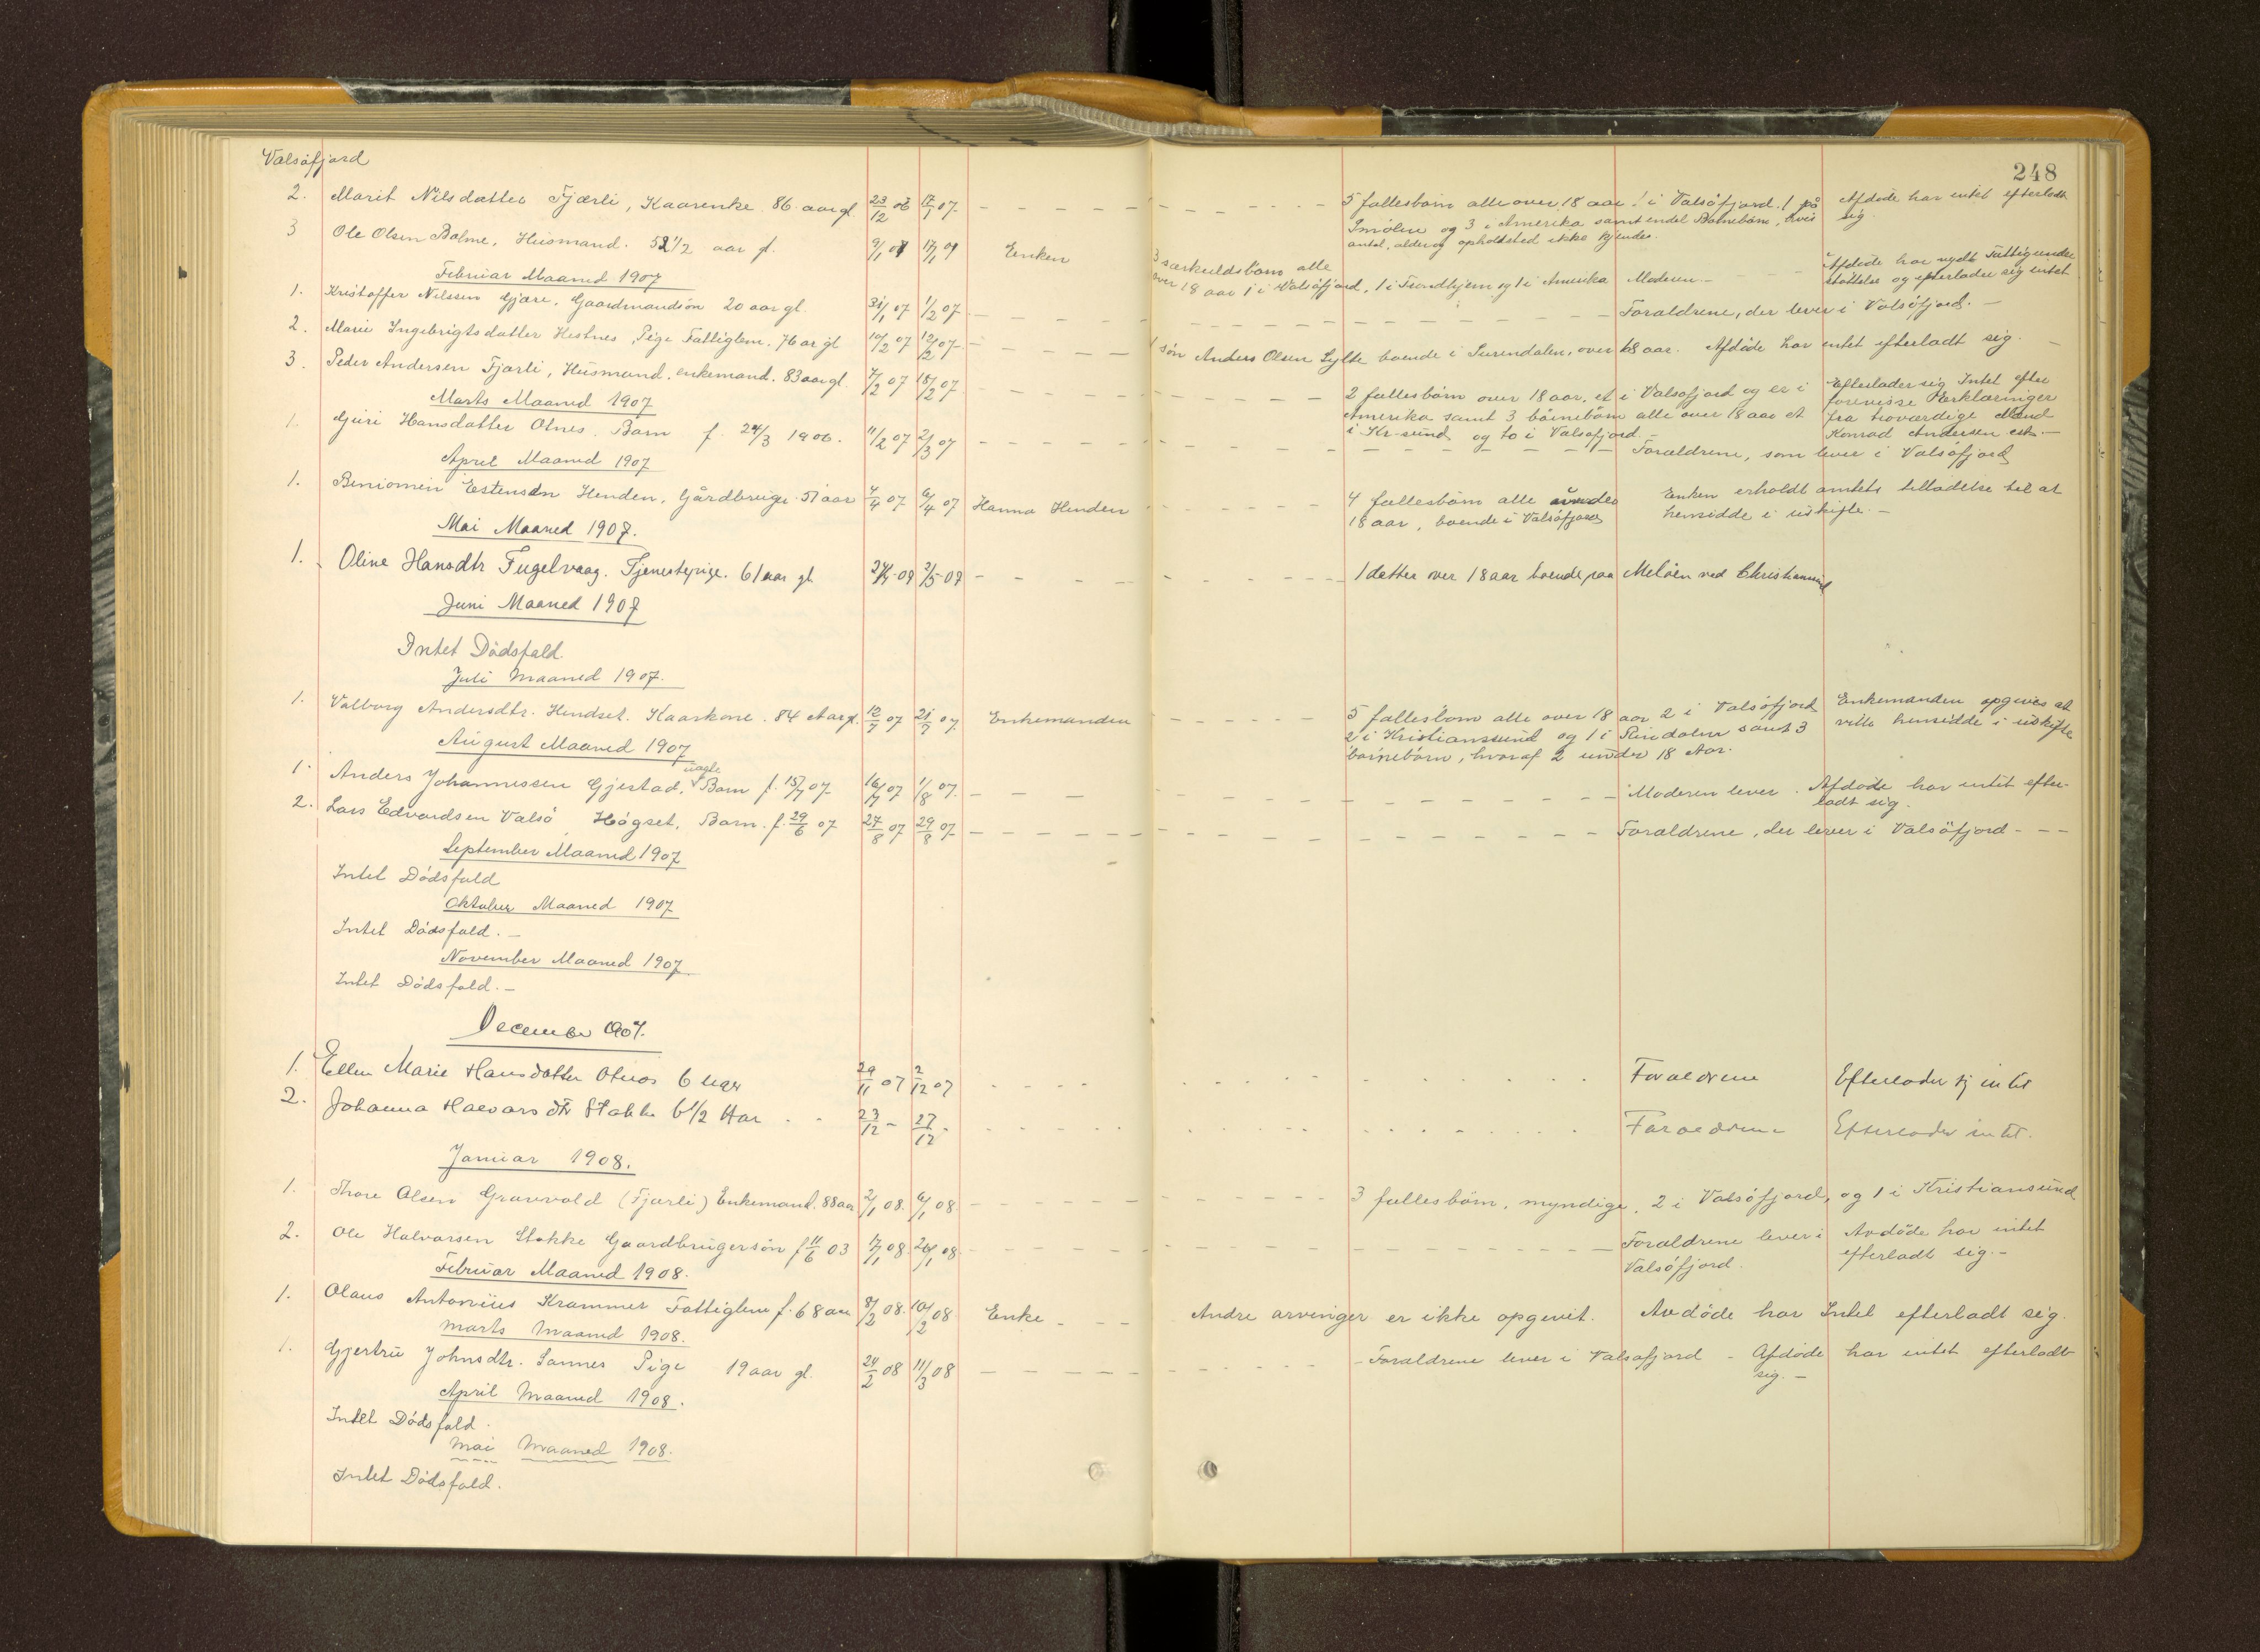 Valsöfjord
248
2. Marit Nilsdatter Fjærli, Kaarenke. 86 aar gl. 23/12 06 17/1 07. 5 fællesbörn alle over 18 aar 1 i Valsöfjord. 1 på Afdöde har intet efterladt
Smölen og 3 i Amerika samt endel Barnebörn, hvis sig.
antal, alder og opholdsted ikke kjendes.
3 Ole Olsen Bolme, Husmand. 52 1/2 aar gl. 9/1 07 17/1 07 Enken 3 særkuldsbörn alle
over 18 aar 1 i Valsöfjord, 1 i Trondhjem og 1 i Amerika Moderen. Afdöde har nydt Fattigunder
stöttelse og efterlader sig intet
Februar Maaned 1907
1. Kristoffer Nilssen Gjære, Gaardmandsön 20 aar gl. 31/1 07 1/2 07 Foraldrene, der lever i Valsöfjord.
2. Marie Ingebrigtsdatter Hestnes, Pige Fattiglem. 76 ar gl 10/2 07 12/2 07. 1 sön Anders Olsen Sylte boende i Surendalen, over 18 aar. Afdöde har intet efterladt sig.
3. Peder Andersen Fjærli, Husmand, enkemand. 83 aar gl. 7/2 07 18/2 07 2 fællesbörn over 18 aar, et i Valsöfjord og er i Efterlader sig Intet efter
Amerika samt 3 börnebörn alle over 18 aar et forevisse Erklæringer
i Kr-sund og to i Valsöfjord. fra troværdige Mænd
Konrad Andersen
Marts Maaned 1907
1. Guri Hansdatter Otnes. Barn f. 24/3 1906. 11/2 07 2/3 07 Foraldrene, som lever i Valsöfjord
April Maaned 1907
1. Beniomin Estensen Henden, Gårdbruger 57 aar 4/4 07 6/4 07 Hanna Henden 4 fællesbörn alle under Enken erholdt amtets tilladelse til at
18 aar, boende i Valsöfjord hensidde i uskifte.
Mai Maaned 1907.
1. Oline Hansdtr Fugelvaag. Tjenestepige. 61 aar gl. 24/4-07 2/5-07 1 datter over 18 aar boende paa Melöen ved Christiansund
Juni Maaned 1907
Intet Dödsfald.
Juli Maaned 1907.
1. Valborg Andersdtr. Hendset. Kaarkone. 84 Aar gl. 12/7 07 21/7 07. Enkemanden 5 fællesbörn alle over 18 aar 2 i Valsöfjord Enkemanden opgives at
2 i Kristiansund og 1 i Rindalen samt 3 ville hensidde i uskifte
börnebörn, hvoraf 2 under 18 Aar.
August Maaned 1907
1. Anders Johannessen Gjestad, uægte Barn f. 15/7 07 16/7 07 1/8 07. Moderen lever. Afdöde har intet efter-
ladt sig.
2. Lars Edvardsen Valsö Högset, Barn. f. 29/6 07 27/8 07 29/8 07 Foraldrene, der lever i Valsöfjord
September Maaned 1907
Intet Dödsfald
Oktober Maaned 1907
Intet Dödsfald.
November Maaned 1907
Intet Dödsfald.
December 1907.
1. Ellen Marie Hansdatter Otnes 6 uger 29/11 07 2/12 07 Foraldrene Efterlader sig intet
2. Johanna Halvorsdtr Stokke 6 1/2 Aar 23/12 - 27/12 - Foraldrene Efterlader intet.
Januar 1908.
1. Thore Olsen Grønvold (Fjærli) Enkemand. 88 aar 2/1 08. 6/1 08 3 fællesbörn, myndige, 2 i Valsöfjord, og 1 i Kristiansund
2. Ole Halvorsen Stokke Gaardbrugersön f 11/6 03 17/1 08. 24/1 08. Foraldrene lever i Avdöde har intet
Valsöfjord. efterladt sig.
Februar Maaned 1908.
1. Olaus Antonius Krammer Fattiglem f. 68 aar 8/2 08. 10/2 08 Enke Andre arvinger er ikke opgevit. Avdöde har Intet efterladt sig.
Marts Maaned 1908.
1. Gjertru Johnsdtr. Sannes Pige 19 aar gl. 24/2 08 11/3 08 Foraldrene lever i Valsöfjord - Afdöde har intet efterladt
sig.
April Maaned 1908.
Intet Dödsfald.
Mai Maaned 1908.
Intet Dödsfald.